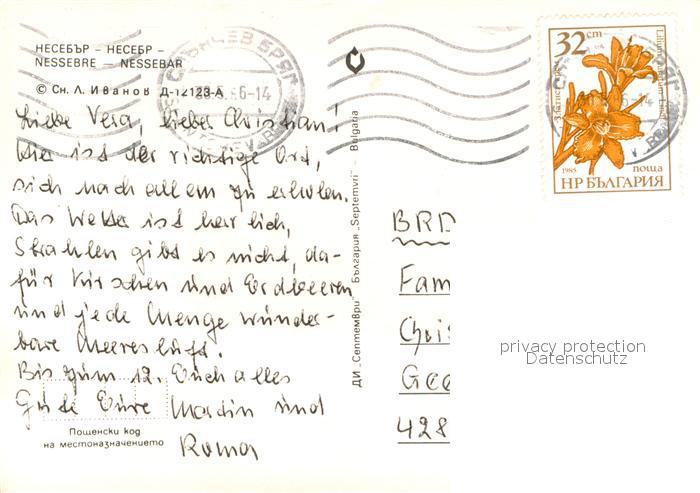 НЕСЕБЪР – НЕСЕБР –
NESSEBRE – NESSEBAR
© Сн. Л. Иванов Д-12123-А
Liebe Vera, lieber Christian!
Hier ist der richtige Ort,
sich nach allem zu erholen.
Das Wetter ist herrlich,
Strahlen gibt es nicht, da-
für Kirschen und Erdbeeren
und jede Menge wunder-
bare Meeresluft.
Bis zum 12. Euch alles
Gute Eure Martin und
Roma
Пощенски код
на местоназначението
ДИ „Септември" България „Septemvri" Bulgaria
СЛЪНЧЕВ БРЯГ
6-14
32 ст
1985
поща
НР БЪЛГАРИЯ
BRD
Fam
Chris
Geo
428
privacy protection
Datenschutz